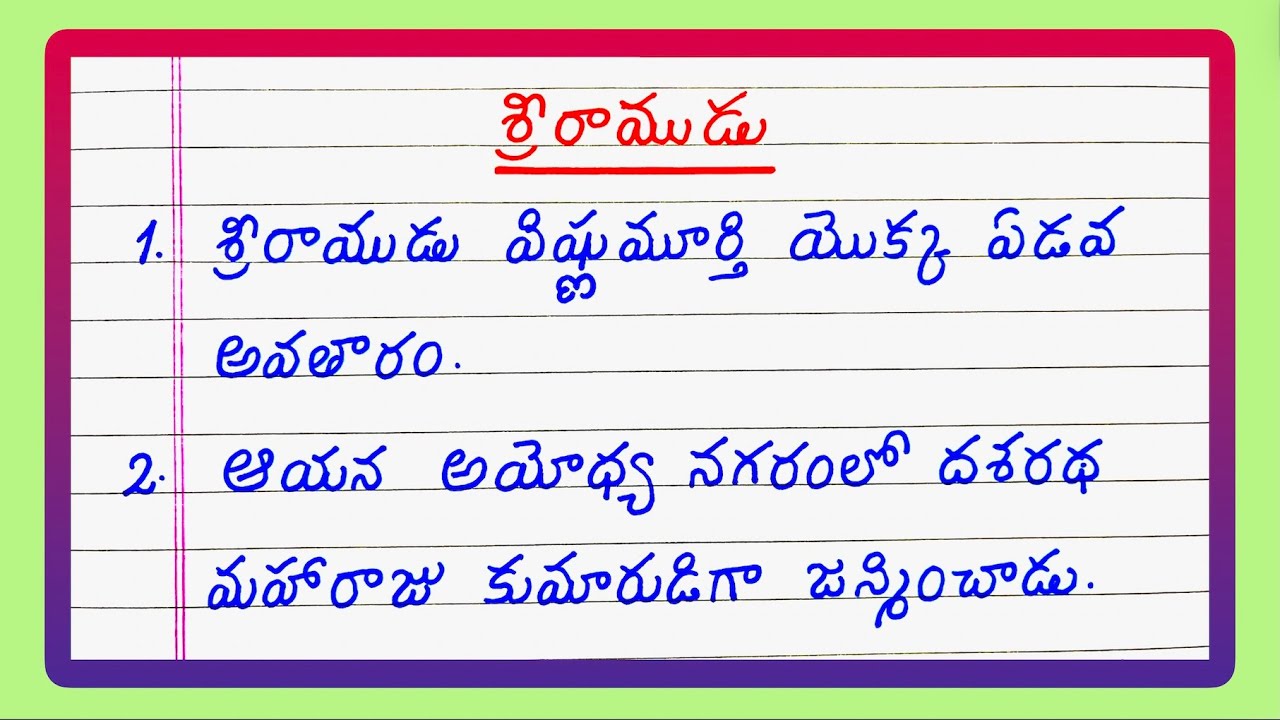 శ్రీరాముడు
1. శ్రీరాయుడు విష్ణుమూర్తి యొక్క ఏడవ
అవతారం.
2. ఆయన అయోధ్య నగరంలో దశరథ
మహారాజు కుమారుడిగా జన్మించాడు.